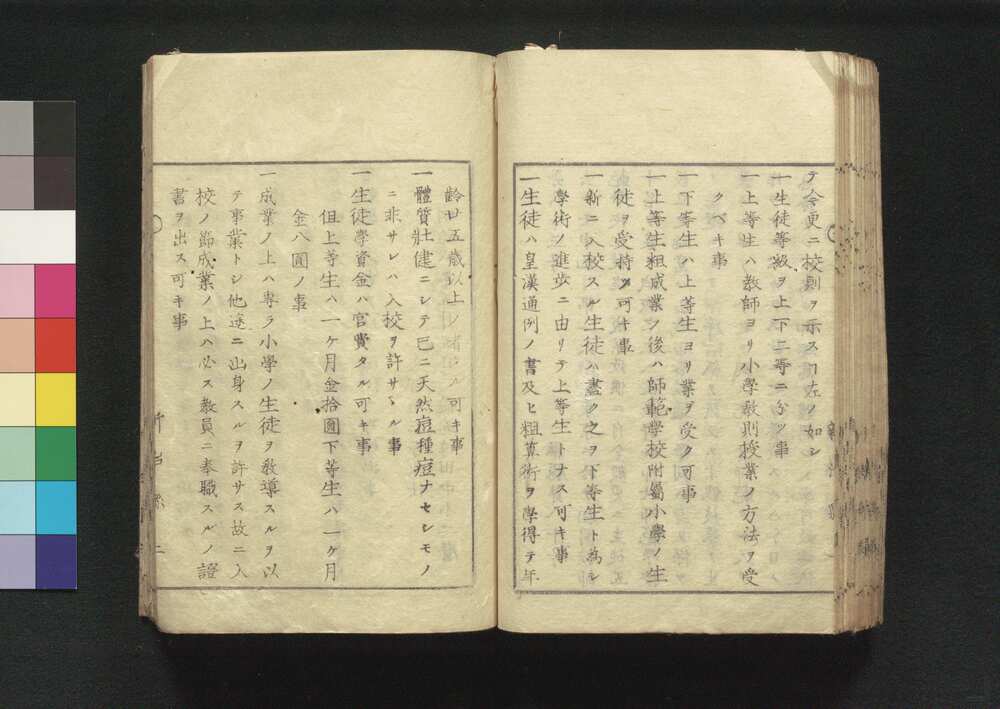 テ今更ニ校則ヲ示スヿ左ノ如シ
一生徒等級ヲ上下二等ニ分ツ事
一上等生ハ教師ヨリ小學教則授業ノ方法ヲ受
クベキ事
一下等生ハ上等生ヨリ業ヲ受ク可事
一上等生粗成業ノ後ハ師範學校附屬小學ノ生
徒ヲ受持ツ可キ事
一新ニ入校スル生徒ハ盡ク之ヲ下等生ト爲シ
學術ノ進歩ニ由リテ上等生トナス可キ事
一生徒ハ皇漢通例ノ書及ヒ粗算術ヲ學得テ年
齡廿五歳以上ノ者タル可キ事
一體質壯健ニシテ已ニ天然痘種痘ナセシモノ
ニ非サレハ入校ヲ許サヽル事
一生徒學資金ハ官費タル可キ事
但上等生ハ一ケ月金拾圓下等生ハ一ケ月
金八圓ノ事
一成業ノ上ハ專ラ小學ノ生徒ヲ教導スルヲ以
テ事業トシ他途ニ出身スルヲ許サス故ニ入
校ノ節成業ノ上ハ必ス教員ニ奉職スルノ證
書ヲ出ス可キ事